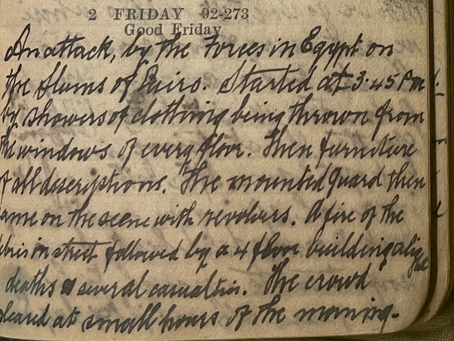 2 FRIDAY 92-273
Good Friday
An attack, by the Forces in Egypt on
the slums of Cairo. Started at 3.45 Pm
by showers of clothing being thrown from
the windows of every floor. Then furniture
of all descriptions. The mounted guard then
came on the scene with revolvers. A fire of the
debris in street followed by a 4 floor building alight
deaths & several casualties. The crowd
cleared at small hours of the morning.